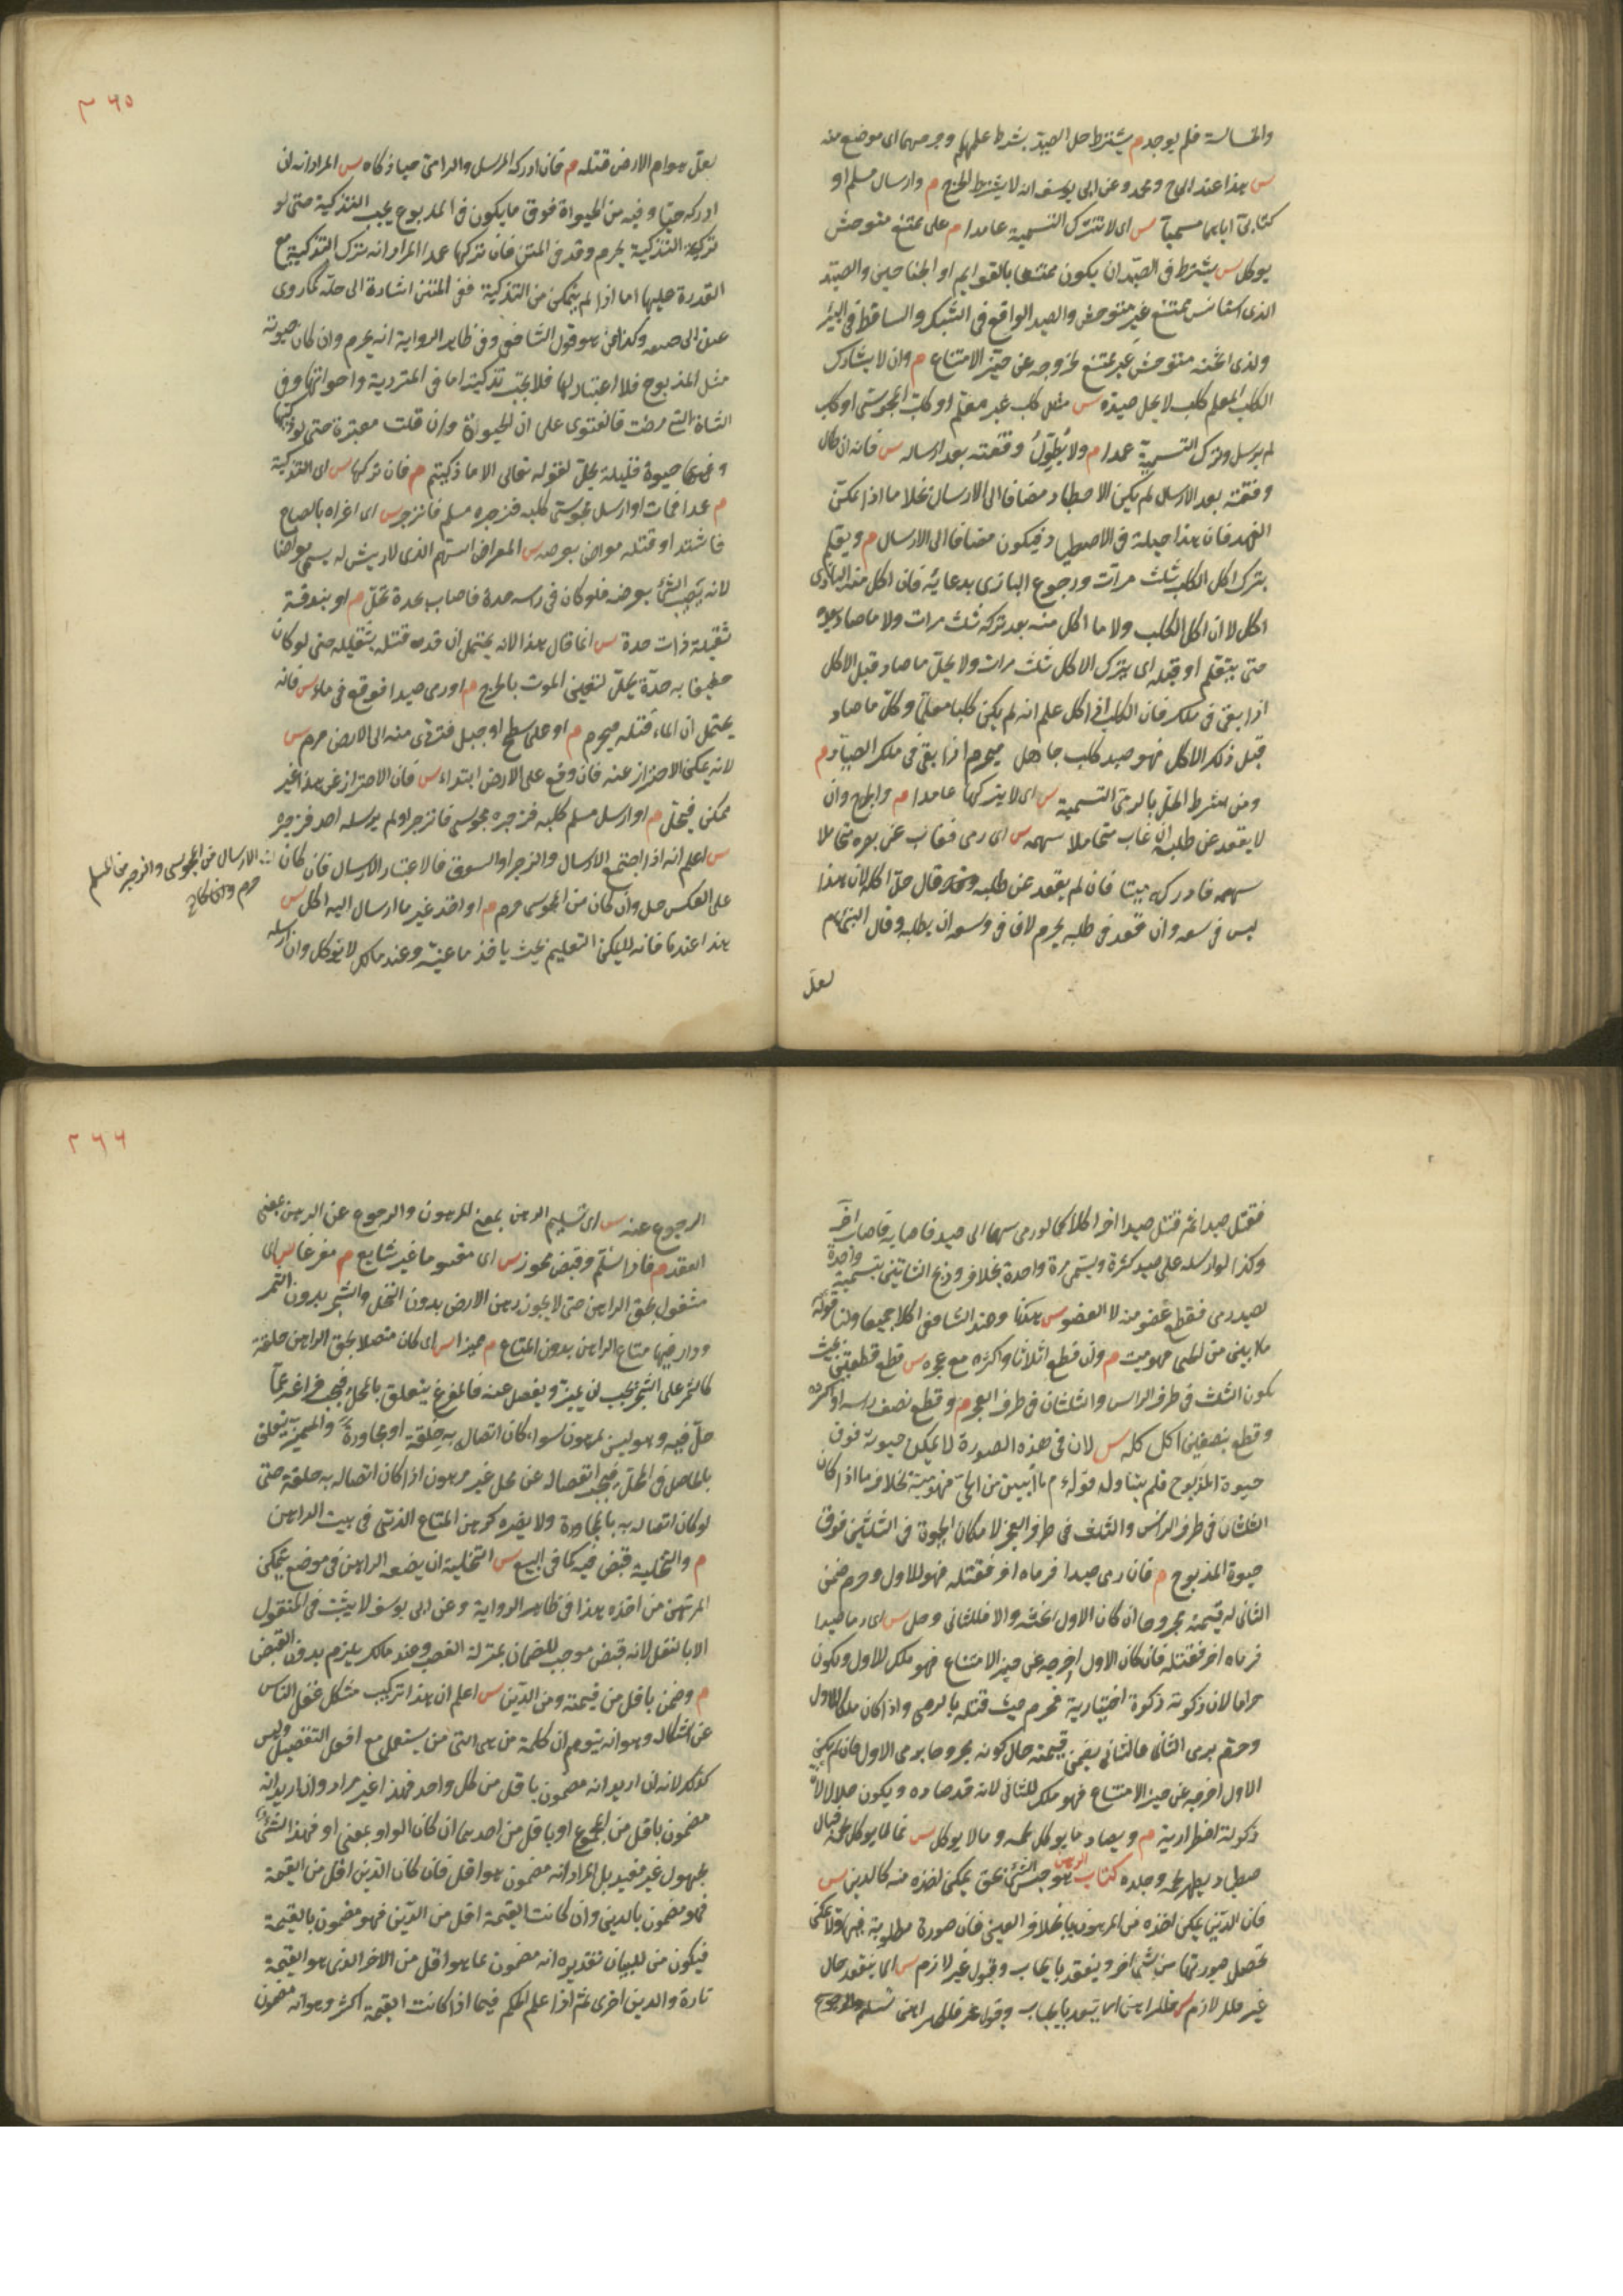 والخسالة فلم يوجد م يشترط حل الصيد بشرط علمهما وجرحهما اى موضع منه
س هذا عند ابى ح ومحمد وعن ابى يوسف انه لا يشترط الجرح م وارسال مسلم او
كتابى اياهما مسميا س اى لا تترك التسمية عامدا م على ممتنع متوحش
يوكل س يشترط فى الصيد ان يكون ممتنعا بالقوايم او الجناحين والصيد
الذى استانس ممتنع غير متوحش والصيد الواقع فى الشبكه والساقط فى البئر
ولذى اثخنه متوحش غير ممتنع لخروجه عن حيز الامتناع م وان لا يشارك
الكلب المعلم كلب لا يحل صيده س مثل كلب غير معلم او كلب المجوسى او كلب
لم يرسل وترك التسمية عمدا م ولا يطول وقفته بعد ارساله س فانه ان طال
وقفته بعد الارسال لم يكن الاصطياد مضافا الى الارسال بخلا ما اذا تمكن
الفهد فان هذا حيلة فى الاصطياد فيكون مضافا الى الارسال م ويعلم
بترك اكل الكلب ثلث مرات ورجوع البازى بدعايه فان اكل منه البازى
اكل لا ان اكل الكلب ولا ما اكل منه بعد تركه ثلث مرات ولا ما صاد بعده
حتى يتعلم او قبله اى بترك الاكل ثلث مرات ولا يحل ما صاد قبل الاكل
اذا بقى فى ملكه فان الكلب اذا اكل علم انه لم يكن كلبا معلما وكل ما صاد
قبل ذلك الاكل فهو صيد كلب جاهل فيحرم اذا بقى فى ملك الصياد م
ومن شرط الحل بالرمى التسمية س اى لا يتركها عامدا م والجرح وان
لا يقعد عن طلبه ان غاب متحاملا سهمه س اى رمى فغاب عن بصره متحاملا
سهمه فادركه ميتا فان لم يقعد عن طلبه وقال حل اكله لان هذا
ليس فى وسعه وان قعد فى طلبه يحرم لان فى وسعه ان يطلبه وقال النبى عم
لعل
٣٦٥
لعل هوام الارض قتله م فان ادركه المرسل والرامى حيا ذكاه س المراد انه ان
ادركه حيا وفيه من الحيوة فوق ما يكون فى المذبوح يجب التذكية حتى لو
تركت التذكية يحرم وقد فى المتن فان تركها عمدا المراد انه ترك التذكية مع
القدرة عليها اما اذا لم يتمكن من التذكية ففى المتن اشارة الى حله كما روى
عن ابى وهو قول الشافعى وفى ظاهر الرواية انه يحرم وان كان حيوته
مثل المذبوح فلا اعتبار لها فلا يجب تذكيته اما فى المتردية واخواتها وفى
الشاة التى مرضت فالفتوى على ان الحيوة وان قلت معتبرة حتى لو ذكيها
وفيها حيوة قليلة يحل لقوله تعالى الا ما ذكيتم م فان تركها س اى التذكية
م عمدا فمات او ارسل مجوسى كلبه فزجره مسلم فانزجر س اى اغراه بالصياح
فاشتد او قتله معراض بعرضه س المعراض السهم الذى لا ريش له يسمى معراضا
لانه يصيب الشئ بعرضه فلو كان فى راسه حدة فاصاب بحدة يحل م او بندقة
ثقيلة ذات حدة س انما قال هذا لانه يحتمل ان قد قتله بثقله حتى لو كان
خفيفا به حدة يحل لتعين الموت بالجرح م او رمى صيدا فوقع فى ماء س فانه
يحتمل ان الماء قتله فيحرم م او على سطح او جبل فتردى منه الى الارض حرم س
لانه يمكن الاحتراز عنه فان وقع على الارض ابتداء س فان الاحتراز عن هذا غير
ممكن فيحل م او ارسل مسلم كلبه فزجره مجوسى فانزجر او لم يرسله احد فزجره
س اعلم انه اذا اجتمع الارسال والزجر او السوق فالاعتبار للارسال فان كان
الارسال من المجوسى والزجر من المسلم
حرم وان كان
على العكس حل وان كان من المجوسى حرم م او اخذ غير ما ارسل اليه اكل س
هذا عندنا فانه لا يمكن التعليم بحيث ياخذ ما عينه وعند مالك لا يوكل وان ارسله
فقتل صيدا ثم قتل صيدا اخر اكلا كما لو رمى سهما الى صيد فاصابه فاصاب اخر
وكذا لو ارسله على صيد كثرة ويسمى مرة واحدة بخلاف ذبح الشاتين بتسمية واحدة
لصيد رمى فقطع عضو منه لا العضو س هكذا وعند الشافعى اكلا جميعا ولنا قوله
ما ابين من الحى فهو ميت م وان قطع اثلاثا واكثره مع عجزه س قطع قطعتين بحيث
يكون الثلث فى طرف الراس والثلثان فى طرف العجز م وقطع نصف راسه او اكثره
وقطع بنصفين اكل كله س لان فى هذه الصورة لا يمكن حيوة فوق
حيوة المذبوح فلم يتناول قوله ءم ما ابين من الحى فهو ميتة بخلاف ما اذا كان
الثلثان فى طرف الراس والثلث فى طرف العجز لامكان الحيوة فى الثلثين فوق
حيوة المذبوح م فان رمى صيدا فرماه اخر فقتله فهو للاول وحرم ضمن
الثانى له قيمته مجروحا ان كان الاول اثخنه والا فللثانى وحل س اى رما صيدا
فرماه اخر فقتله فان كان الاول اخرجه عن حيز الامتناع فهو ملك للاول ويكون
حراما لان ذكوته ذكوة اختيارية فيحرم حيث قتله بالرمى واذا كان ملكا للاول
وحرم برمى الثانى فالثانى يضمن قيمته حال كونه مجروحا برمى الاول فان لم يكن
الاول اخرجه عن حيز الامتناع فهو ملك للثانى لانه قد صاده ويكون حلالا لان
ذكوته اضطرارية م ويصاد ما يوكل لحمه وما لا يوكل س فما لا يوكل لحمه فبال
صطياد يطهر لحمه وجلده كتاب الرهن هو حبس الشئ بحق يمكن اخذه منه كالدين س
فان الدين يمكن اخذه من المرهون بخلاف العين فان صورة مطلوبة فيها ولا يمكن
تحصيل صورتها من شئ اخر وينعقد بايجاب وقبول غير لازم س اى ينعقد حال
٣٦٦
الرجوع عنه س اى تسليم الرهن بمعنى المرهون والرجوع عن الرهن بمعنى
العقد م فاذا سلم وقبض محوزا س اى مقسوما غير شايع م مفرغا س اى
مشغول بحق الراهن حتى لا يجوز رهن الارض بدون النخل والشجر بدون الثمر
ودار فيها متاع الراهن بدون المتاع م مميزا س اى كان متصلا بحق الراهن خلقة
كالثمر على الشجر فيجب ان يميزه ويفصل عنه فالمفرغ يتعلق بالمحل فيجب فراغه عما
حل فيه وهو ليس بمرهون سواء كان اتصاله به خلقة او مجاورة والمميز يتعلق
بالحاصل فى المحل فيجب انفصاله عن محل غير مرهون اذا كان اتصاله به خلقة حتى
لو كان اتصاله به بالمجاورة ولا يضره كرهن المتاع الذى فى بيت الراهن
م والتخلية قبض فيه كما فى البيع س التخلية ان يضعه الراهن فى موضع يتمكن
المرتهن من اخذه هذا فى ظاهر الرواية وعن ابى يوسف لا يثبت فى المنقول
الا بالنقل لانه قبض موجب للضمان بمنزلة الغصب وعند مالك يلزم بدون القبض
م وضمن باقل من قيمته ومن الدين س اعلم ان هذا تركيب مشكل غفل الناس
عن اشكاله وهو انه يتوهم ان كلمة من هى التى من يستعمل مع افعل التفضيل وليس
كذلك لانه ان اريد انه مضمون باقل من كل واحد فهذا غير مراد وان اريد انه
مضمون باقل من المجموع او باقل من احدهما ان كان الواو بمعنى او فهذا الشئ
مجهول غير مفيد بل المراد انه مضمون بما هو اقل فان كان الدين اقل من القيمة
فهو مضمون بالدين وان كانت القيمة اقل من الدين فهو مضمون بالقيمة
فيكون من للبيان تقديره انه مضمون بما هو اقل من الاخر الذى هو القيمة
تارة والدين اخرى ثم اذا علم الحكم فيما اذا كانت القيمة اكثر وهو انه مضمون